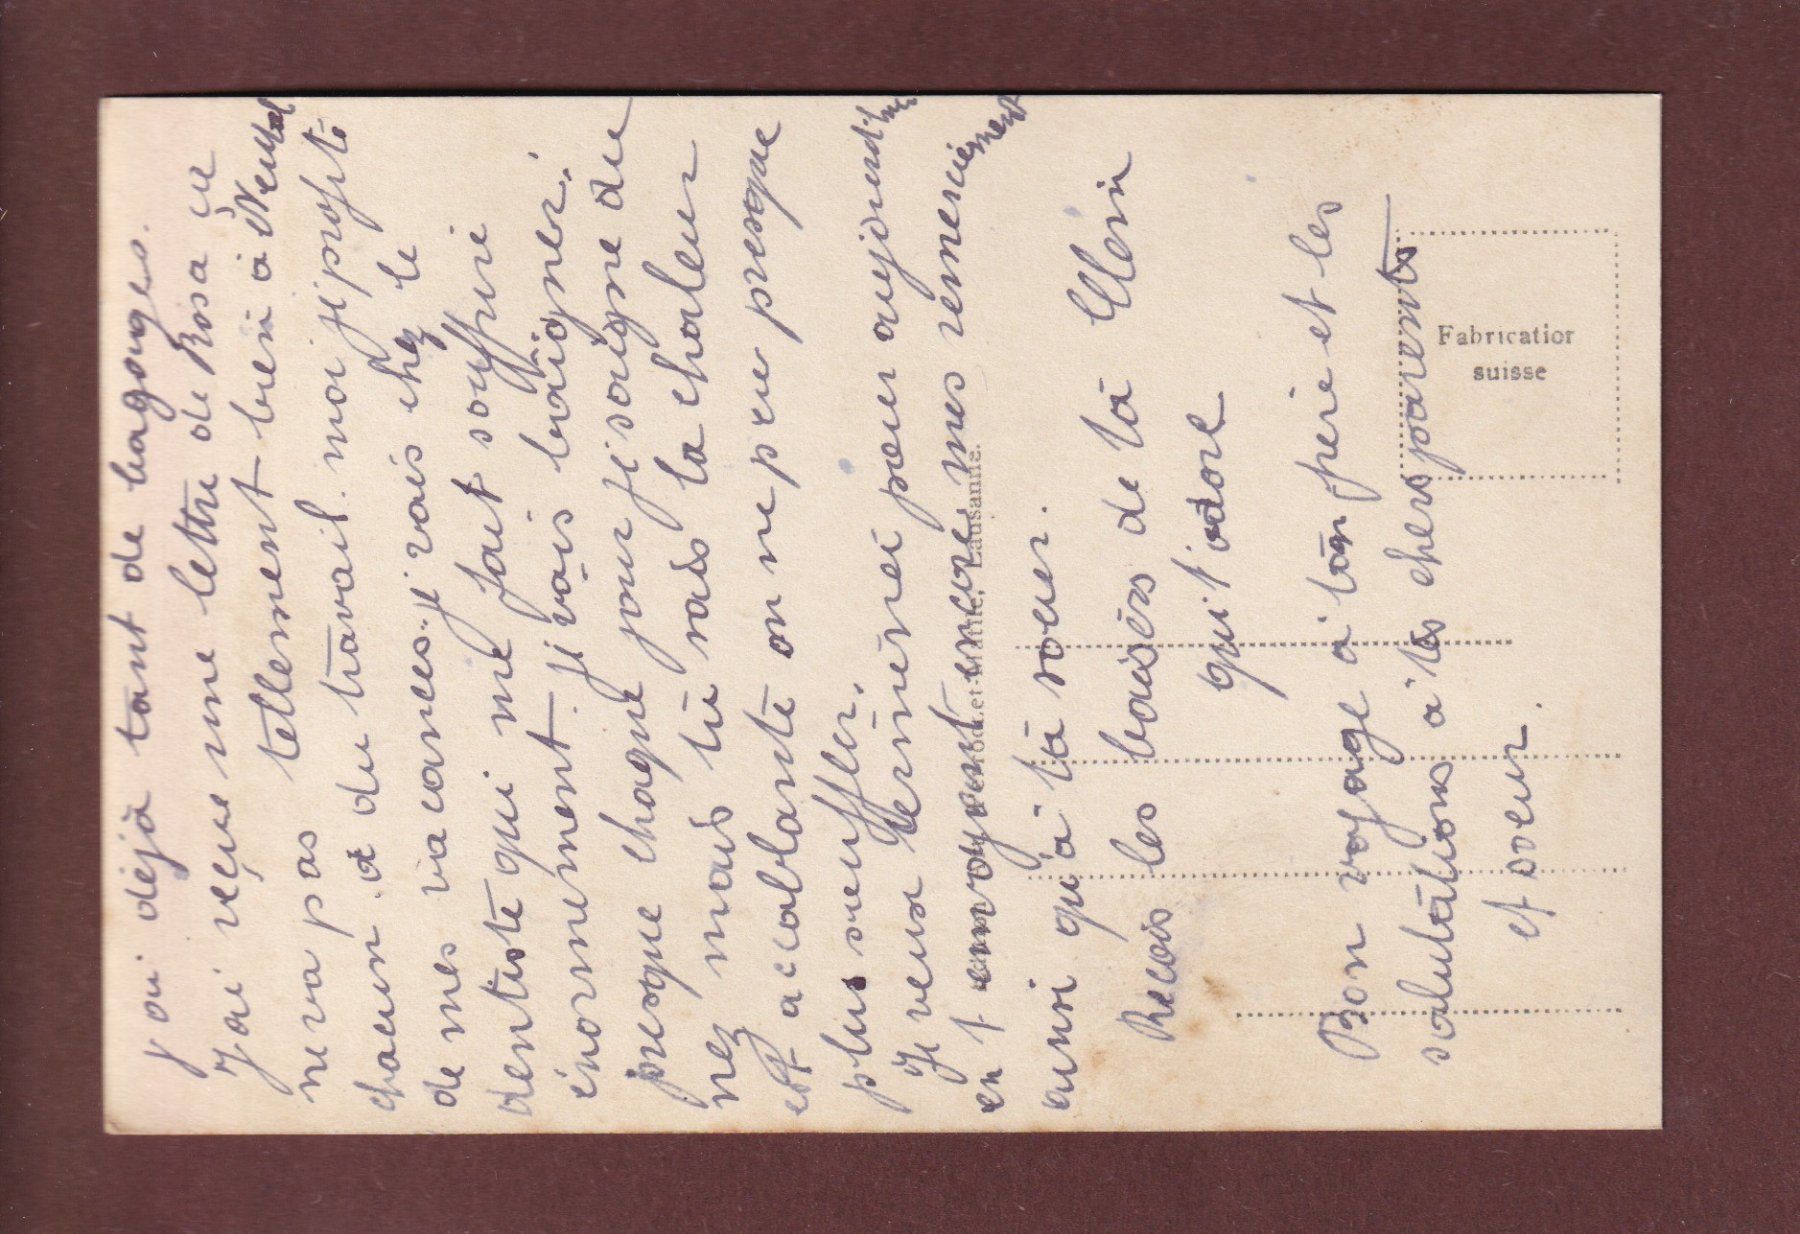 j ai déjà tant de bagages.
J'ai reçue une lettre de Rosa ça
ne va pas tellement bien à Neuchâtel
chacun a du travail. moi je profite
de mes vacances. j vais chez le
dentiste qui me fait souffrir
énormément. je vais baigner
presque chaque jour je soigne du
nez mais tu sais la chaleur
est accablante on ne peu presque
plus souffler.
Je veux terminer pour aujourd'hui
en t envoyent encore mes remerciement
ainsi qu'à ta soeur.
Recois les baisers de ta
qui t'adore
Bon voyage à ton père et les
salutations à tes chers parents
et soeur.
Lausanne.
Fabrication
suisse